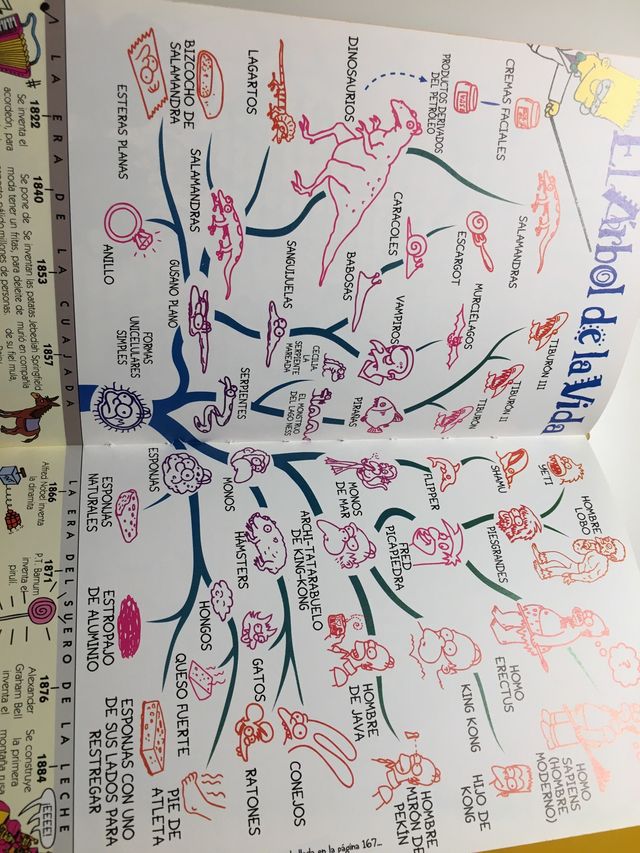 El Árbol de la Vida
CREMAS FACIALES
PRODUCTOS DERIVADOS
DEL PETRÓLEO
DINOSAURIOS
LAGARTOS
BIZCOCHO DE
SALAMANDRA
ESTERAS PLANAS
SALAMANDRAS
ESCARGOT
CARACOLES
BABOSAS
SANGUIJUELAS
SALAMANDRAS
GUSANO PLANO
ANILLO
TIBURÓN III
TIBURÓN II
TIBURÓN
MURCIÉLAGOS
VAMPIROS
PIRAÑAS
CECILIA
LA
SERPIENTE
MAREADA
EL MONSTRUO
DEL LAGO NESS
SERPIENTES
FORMAS
UNICELULARES
SIMPLES
YETI
SHAMU
FLIPPER
MONOS
DE MAR
MONOS
ESPONJAS
ESPONJAS
NATURALES
HOMBRE
LOBO
PIESGRANDES
FRED
PICAPIEDRA
ARCHI-TATARABUELO
DE KING-KONG
HAMSTERS
HONGOS
ESTROPAJO
DE ALUMINIO
HOMO
ERECTUS
KING KONG
HOMBRE
DE JAVA
GATOS
QUESO FUERTE
HOMO
SAPIENS
(HOMBRE
MODERNO)
HIJO DE
KONG
HOMBRE
MIRÓN DE
PEKÍN
CONEJOS
RATONES
PIE DE
ATLETA
ESPONJAS CON UNO
DE SUS LADOS PARA
RESTREGAR
en la página 167...
LA ERA DE LA CUAJADA
LA ERA DEL SUERO DE LA LECHE
1822
Se inventa el
acordeón, para
1840
Se pone de
moda tener un
1853
Se inventan las patatas
fritas, para deleite de
millones de personas.
1857
Jebediah Springfield
murió en compañía
de su fiel mula,
1866
Alfred Nobel inventa
la dinamita
1871
P.T. Barnum
inventa el
pirulí.
1876
Alexander
Graham Bell
inventa el
1884
Se construye
la primera
montaña rusa
¡EEEE!